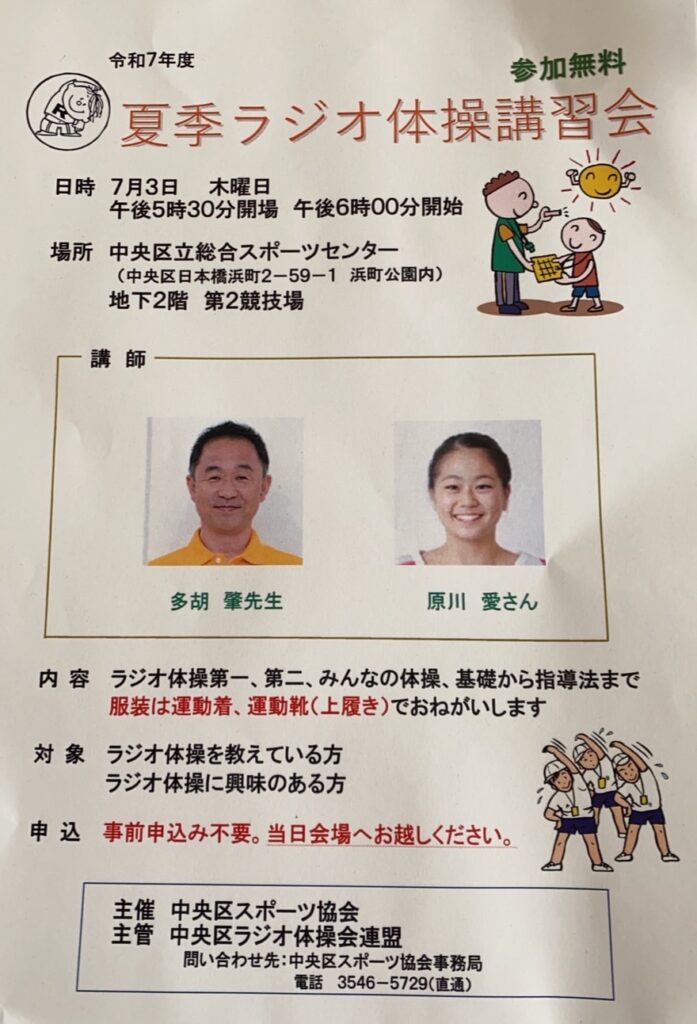 令和7年度
参加無料
夏季ラジオ体操講習会
日時 7月3日 木曜日
午後5時30分開場 午後6時00分開始
場所 中央区立総合スポーツセンター
（中央区日本橋浜町2－59－1 浜町公園内）
地下2階 第2競技場
講師
多胡 肇先生
原川 愛さん
内容 ラジオ体操第一、第二、みんなの体操、基礎から指導法まで
服装は運動着、運動靴（上履き）でおねがいします
対象 ラジオ体操を教えている方
ラジオ体操に興味のある方
申込 事前申込み不要。当日会場へお越しください。
主催 中央区スポーツ協会
主管 中央区ラジオ体操会連盟
問い合わせ先：中央区スポーツ協会事務局
電話 3546－5729（直通）